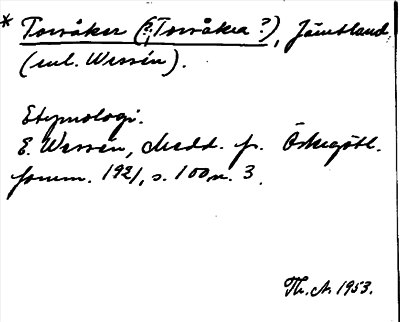 * Torsåker (?, Torsåkra ?), Jämtland
(enl. Wessén).
Etymologi.
E. Wessén, Medd. fr. Östergötl.
fornm. 1921, s. 100 n. 3.
Th. A. 1953.